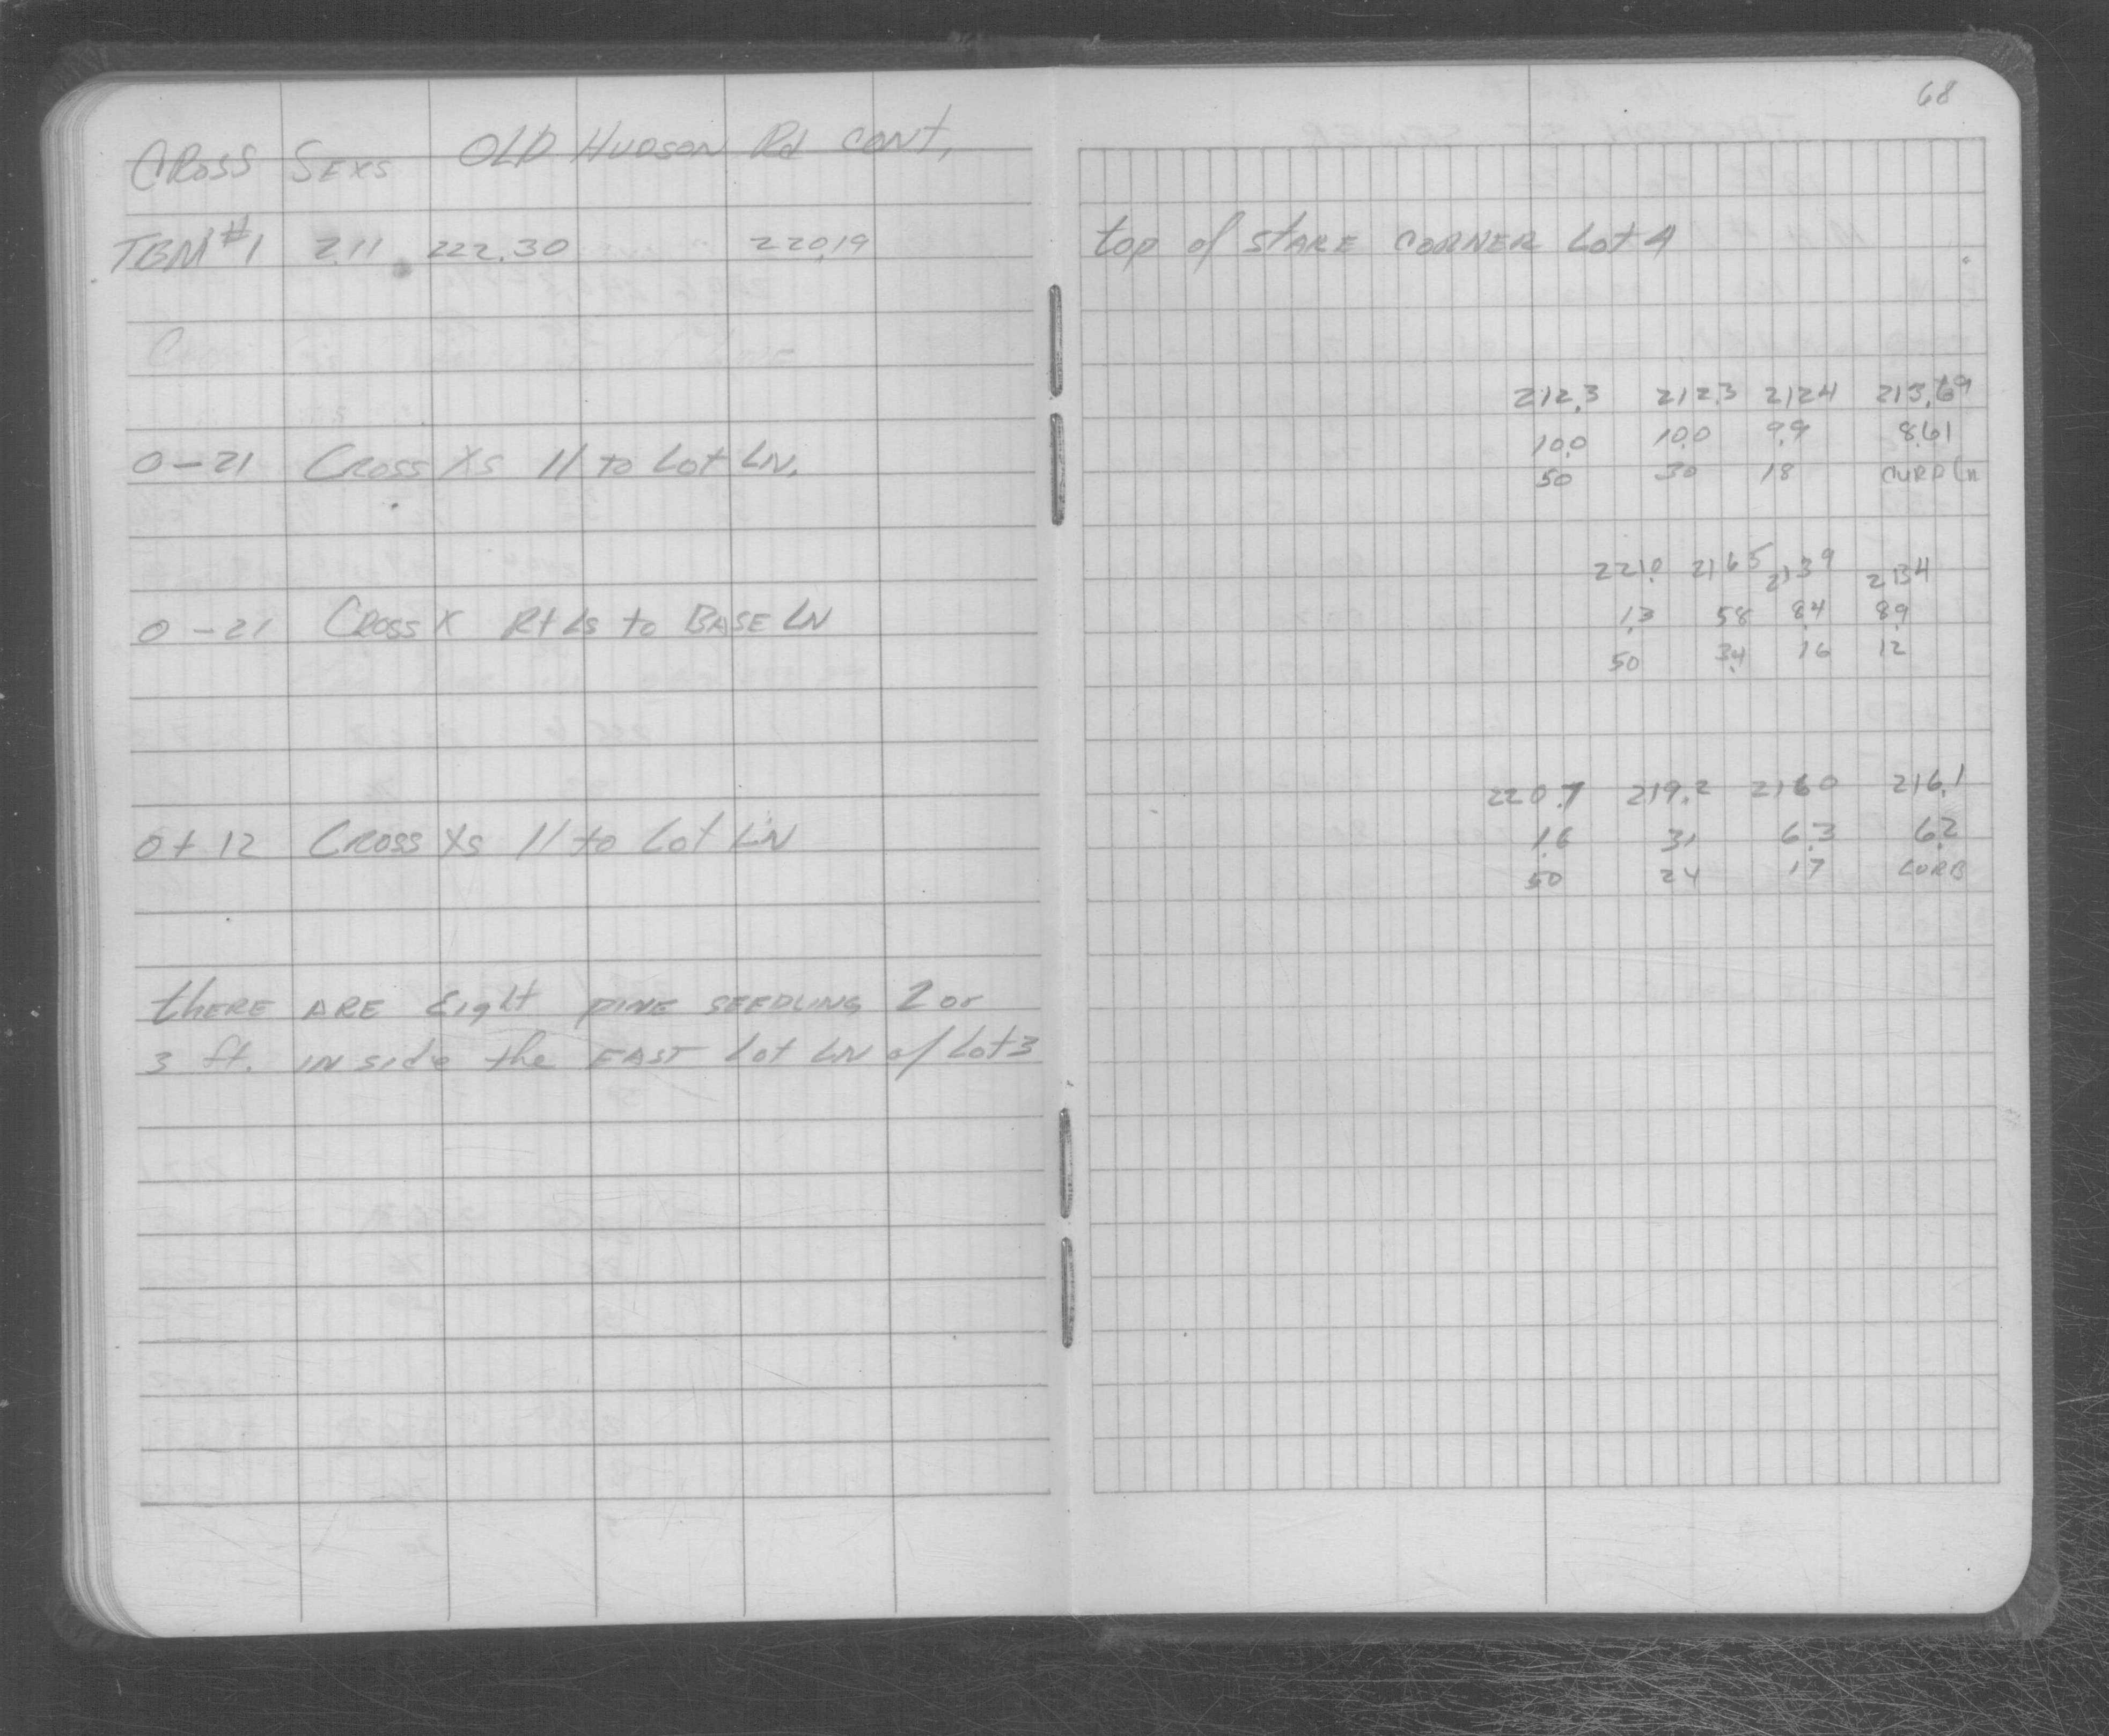 68
CROSS SEXS OLD HUDSON Rd CONT,
TBM #1 2.11 222.30 220.19
top of STAKE CORNER Lot 4
212.3 212.3 212.4 213.69
10.0 10.0 9.9 8.61
50 30 18 CURB Ln
0-21 CROSS Xs // to Lot LN.
221.0 216.5 213.9 213.4
1.3 5.8 8.4 8.9
50 34 16 12
0-21 CROSS X Rt Ls to BASE LN
220.7 219.2 216.0 216.1
1.6 3.1 6.3 6.2
50 24 17 CURB
0+12 CROSS Xs // to Lot LN
there ARE Eight PINE SEEDLING 2 or
3 ft. INside the EAST Lot LN of Lot 3